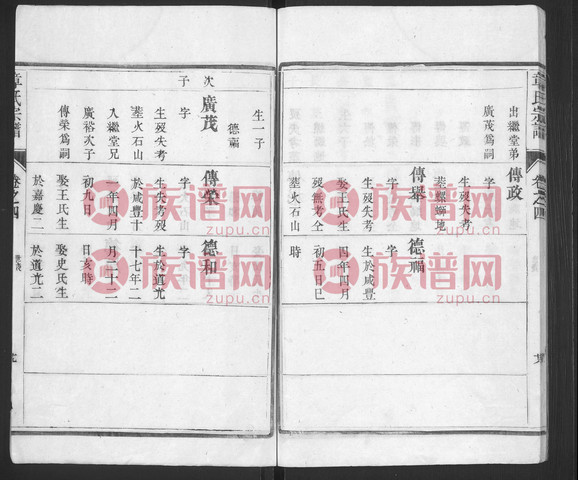 章氏宗譜
卷之四
出繼堂弟
廣茂爲嗣
傳政
字
生歿失考
葬螺螄地
傳舉
字
生歿失考
娶王氏生
歿無考仝
葬火石山
德福
字
生於咸豐
四年四月
初五日巳
時
生一子
德福
次子
廣茂
字
生歿失考
葬火石山
入繼堂兄
廣裕次子
傳榮爲嗣
傳榮
字
生失考歿
於咸豐十
年四月
初九日
娶王氏生
於嘉慶二
德和
字
生於道光
十七年二
月二十二
日亥時
娶史氏生
於道光二
章氏宗譜
卷之四
族谱网
zupu.cn
族谱网
zupu.cn
族谱网
zupu.cn
族谱网
zupu.cn